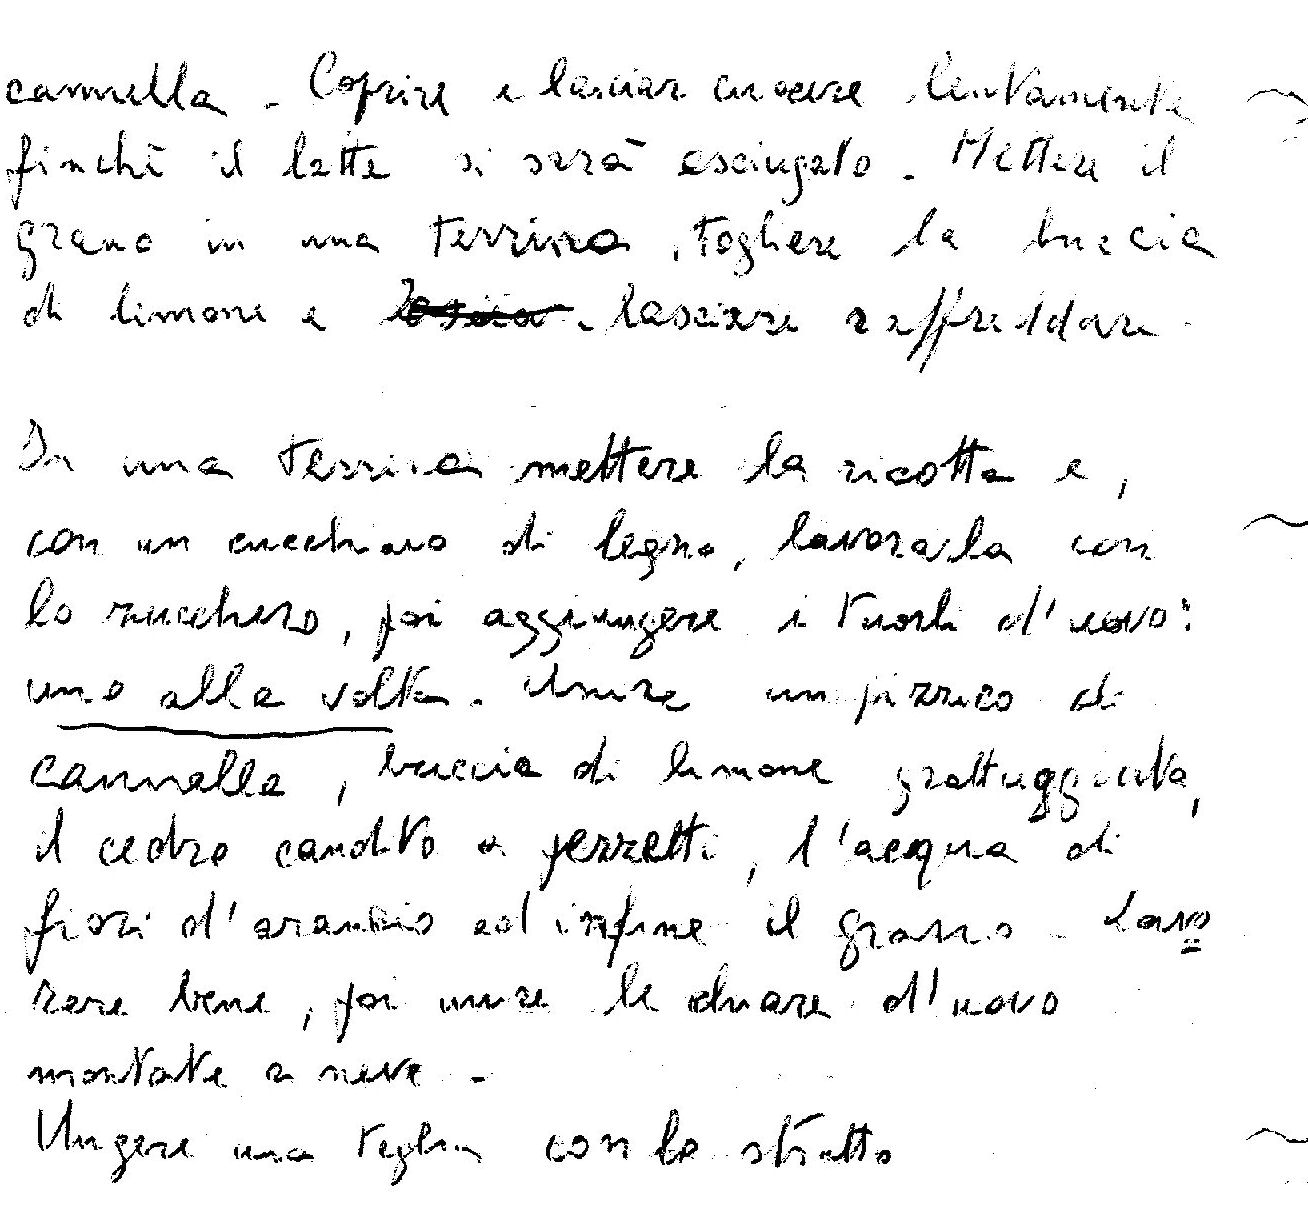 cannella - Coprire e lasciar cuocere lentamente
finchè il latte si sarà asciugato - Mettere il
grano in una terrina, togliere la buccia
di limone e lasciare raffreddare.
In una terrina mettere la ricotta e,
con un cucchiaio di legno, lavorarla con
lo zucchero, poi aggiungere i tuorli d'uovo:
uno alla volta. Unire un pizzico di
cannella, buccia di limone grattuggiata,
il cedro candito a pezzetti, l'acqua di
fiori d'arancio ed infine il grano - Lavo
rare bene, poi unire le chiare d'uovo
montate a neve -
Ungere una teglia con lo strutto